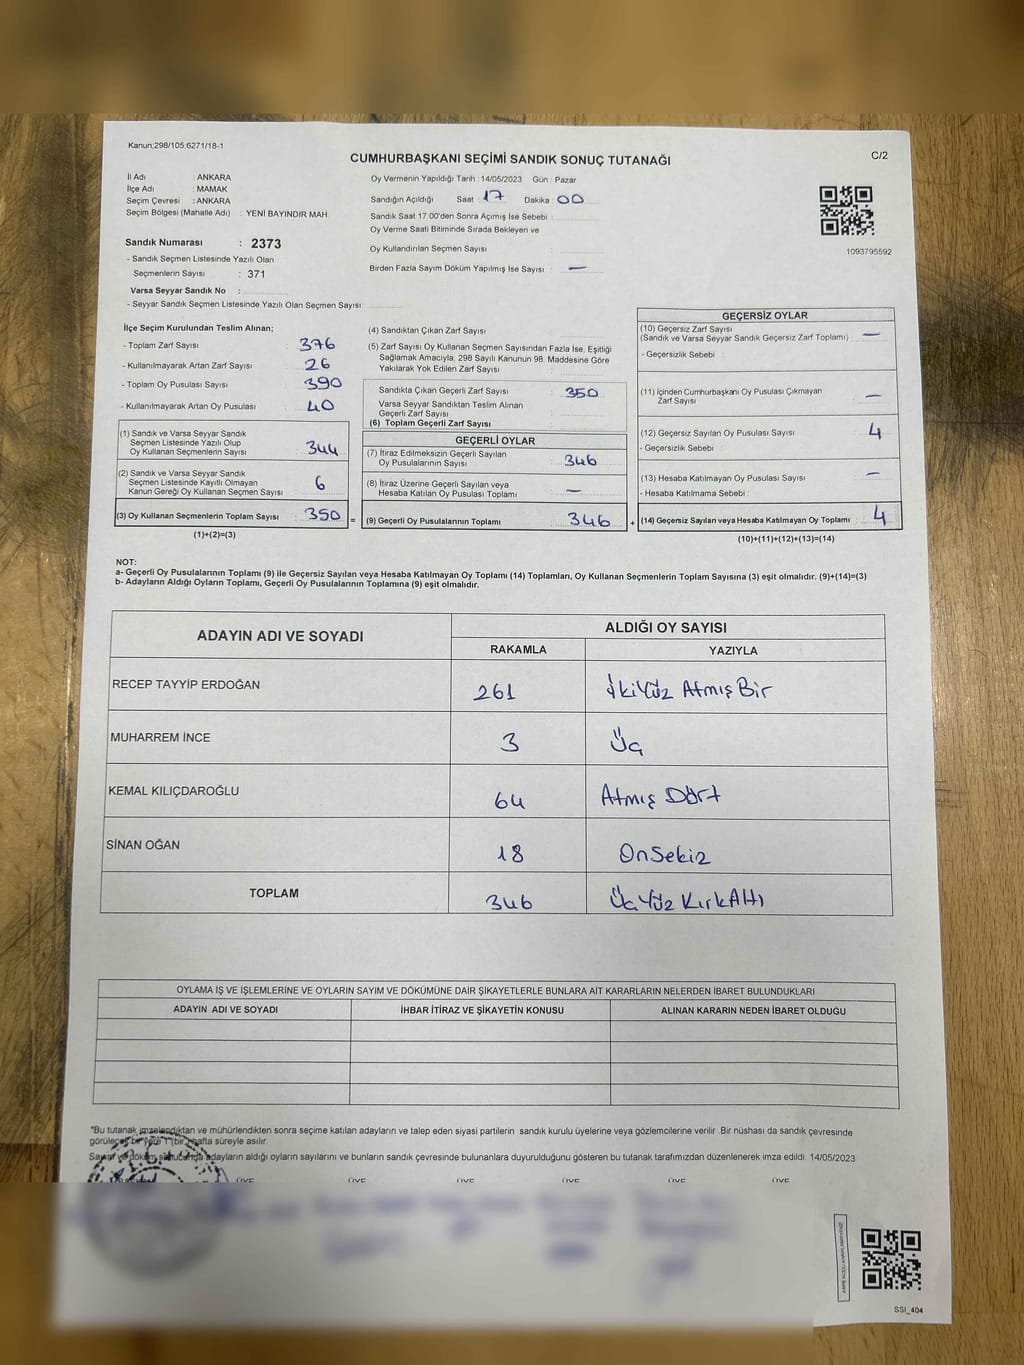 Kanun,298/105,6271/18-1
CUMHURBAŞKANI SEÇİMİ SANDIK SONUÇ TUTANAĞI
C/2
İl Adı : ANKARA
İlçe Adı : MAMAK
Seçim Çevresi : ANKARA
Seçim Bölgesi (Mahalle Adı) : YENİ BAYINDIR MAH
Oy Vermenin Yapıldığı Tarih : 14/05/2023 Gün : Pazar
Sandığın Açıldığı Saat : 17 Dakika : 00
Sandık Saat 17:00'den Sonra Açımış İse Sebebi :
Oy Verme Saati Bitiminde Sırada Bekleyen ve
Oy Kullandırılan Seçmen Sayısı :
Birden Fazla Sayım Döküm Yapılmış İse Sayısı : —
1093795592
Sandık Numarası : 2373
- Sandık Seçmen Listesinde Yazılı Olan
Seçmenlerin Sayısı : 371
Varsa Seyyar Sandık No :
- Seyyar Sandık Seçmen Listesinde Yazılı Olan Seçmen Sayısı:
İlçe Seçim Kurulundan Teslim Alınan;
- Toplam Zarf Sayısı : 376
- Kullanılmayarak Artan Zarf Sayısı : 26
- Toplam Oy Pusulası Sayısı : 390
- Kullanılmayarak Artan Oy Pusulası : 40
(1) Sandık ve Varsa Seyyar Sandık
Seçmen Listesinde Yazılı Olup
Oy Kullanan Seçmenlerin Sayısı : 344
(2) Sandık ve Varsa Seyyar Sandık
Seçmen Listesinde Kayıtlı Olmayan
Kanun Gereği Oy Kullanan Seçmen Sayısı : 6
(3) Oy Kullanan Seçmenlerin Toplam Sayısı : 350 =
(1)+(2)=(3)
(4) Sandıktan Çıkan Zarf Sayısı :
(5) Zarf Sayısı Oy Kullanan Seçmen Sayısından Fazla İse, Eşitliği
Sağlamak Amacıyla; 298 Sayılı Kanunun 98. Maddesine Göre
Yakılarak Yok Edilen Zarf Sayısı :
Sandıkta Çıkan Geçerli Zarf Sayısı : 350
Varsa Seyyar Sandıktan Teslim Alınan
Geçerli Zarf Sayısı :
(6) Toplam Geçerli Zarf Sayısı :
GEÇERLİ OYLAR
(7) İtiraz Edilmeksizin Geçerli Sayılan
Oy Pusulalarının Sayısı : 346
(8) İtiraz Üzerine Geçerli Sayılan veya
Hesaba Katılan Oy Pusulası Toplamı : —
(9) Geçerli Oy Pusulalarının Toplamı : 346 +
GEÇERSİZ OYLAR
(10) Geçersiz Zarf Sayısı
(Sandık ve Varsa Seyyar Sandık Geçersiz Zarf Toplamı) : —
- Geçersizlik Sebebi :
(11) İçinden Cumhurbaşkanı Oy Pusulası Çıkmayan
Zarf Sayısı : —
(12) Geçersiz Sayılan Oy Pusulası Sayısı : 4
- Geçersizlik Sebebi :
(13) Hesaba Katılmayan Oy Pusulası Sayısı : —
- Hesaba Katılmama Sebebi :
(14) Geçersiz Sayılan veya Hesaba Katılmayan Oy Toplamı : 4
(10)+(11)+(12)+(13)=(14)
NOT:
a- Geçerli Oy Pusulalarının Toplamı (9) ile Geçersiz Sayılan veya Hesaba Katılmayan Oy Toplamı (14) Toplamları, Oy Kullanan Seçmenlerin Toplam Sayısına (3) eşit olmalıdır. (9)+(14)=(3)
b- Adayların Aldığı Oyların Toplamı, Geçerli Oy Pusulalarının Toplamına (9) eşit olmalıdır.
ADAYIN ADI VE SOYADI
ALDIĞI OY SAYISI
RAKAMLA YAZIYLA
RECEP TAYYİP ERDOĞAN 261 İkiYüz Atmış Bir
MUHARREM İNCE 3 Üç
KEMAL KILIÇDAROĞLU 64 Atmış Dört
SİNAN OĞAN 18 OnSekiz
TOPLAM 346 ÜçYüz KırkAltı
OYLAMA İŞ VE İŞLEMLERİNE VE OYLARIN SAYIM VE DÖKÜMÜNE DAİR ŞİKAYETLERLE BUNLARA AİT KARARLARIN NELERDEN İBARET BULUNDUKLARI
ADAYIN ADI VE SOYADI İHBAR İTİRAZ VE ŞİKAYETİN KONUSU ALINAN KARARIN NEDEN İBARET OLDUĞU
"Bu tutanak imzalandıktan ve mühürlendikten sonra seçime katılan adayların ve talep eden siyasi partilerin sandık kurulu üyelerine veya gözlemcilerine verilir. Bir nüshası da sandık çevresinde
görülecek bir yere 1 (bir) hafta süreyle asılır.
Sayım ve döküm sonucunda adayların aldığı oyların sayılarını ve bunların sandık çevresinde bulunanlara duyurulduğunu gösteren bu tutanak tarafımızdan düzenlenerek imza edildi. 14/05/2023
ÜYE ÜYE ÜYE ÜYE ÜYE ÜYE
SSI_404